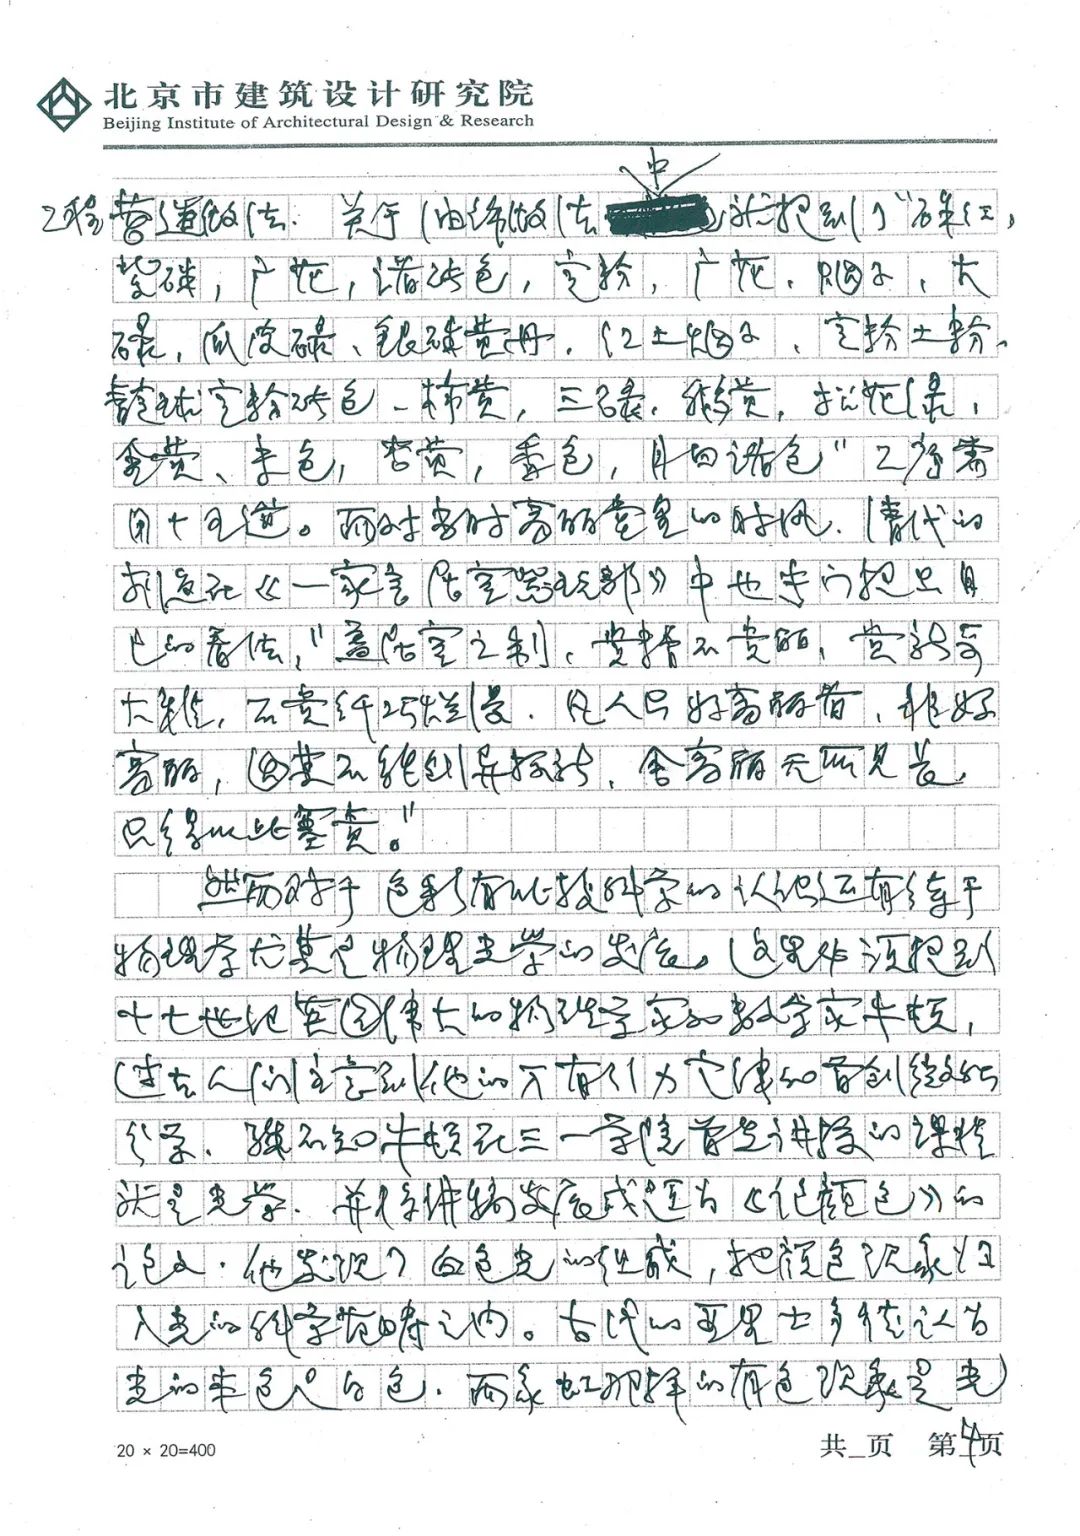 北京市建筑设计研究院
Beijing Institute of Architectural Design & Research
中
工程营造做法. 关于油饰做法就提到了“硃红,
紫硃, 广花, 诸砖色, 定粉, 广花, 烟子, 大
碌, 瓜皮碌、银硃黄丹, 红土烟子、定粉土粉,
靛球定粉砖色、柿黄, 三碌, 鹅黄, 松花绿,
金黄、米色, 杏黄, 香色, 月白诸色”工序需
用十五道。而对当时富丽堂皇的时风, 清代的
李渔在《一家言居室器玩部》中也专门提出自
己的看法, “盖居室之制, 贵精不贵丽, 贵新奇
大雅, 不贵纤巧烂漫. 凡人只好富丽者, 非好
富丽, 因其不能创异标新, 舍富丽无所见长,
只得以此塞责。”
然而对于色彩有比较科学的认识还有待于
物理学尤其是物理光学的发展。这里应该提到
十七世纪英国伟大的物理学家和数学家牛顿,
过去人们注意到他的万有引力定律和首创微积
分学, 殊不知牛顿在三一学院首先讲授的课程
就是光学. 并将讲稿发展成题为《论颜色》的
论文. 他发现了白色光的组成, 把颜色现象归
入光的科学范畴之内。古代的亚里士多德认为
光的本色是白色. 而象虹那样的有色现象是光
20 × 20=400
共 页 第4页